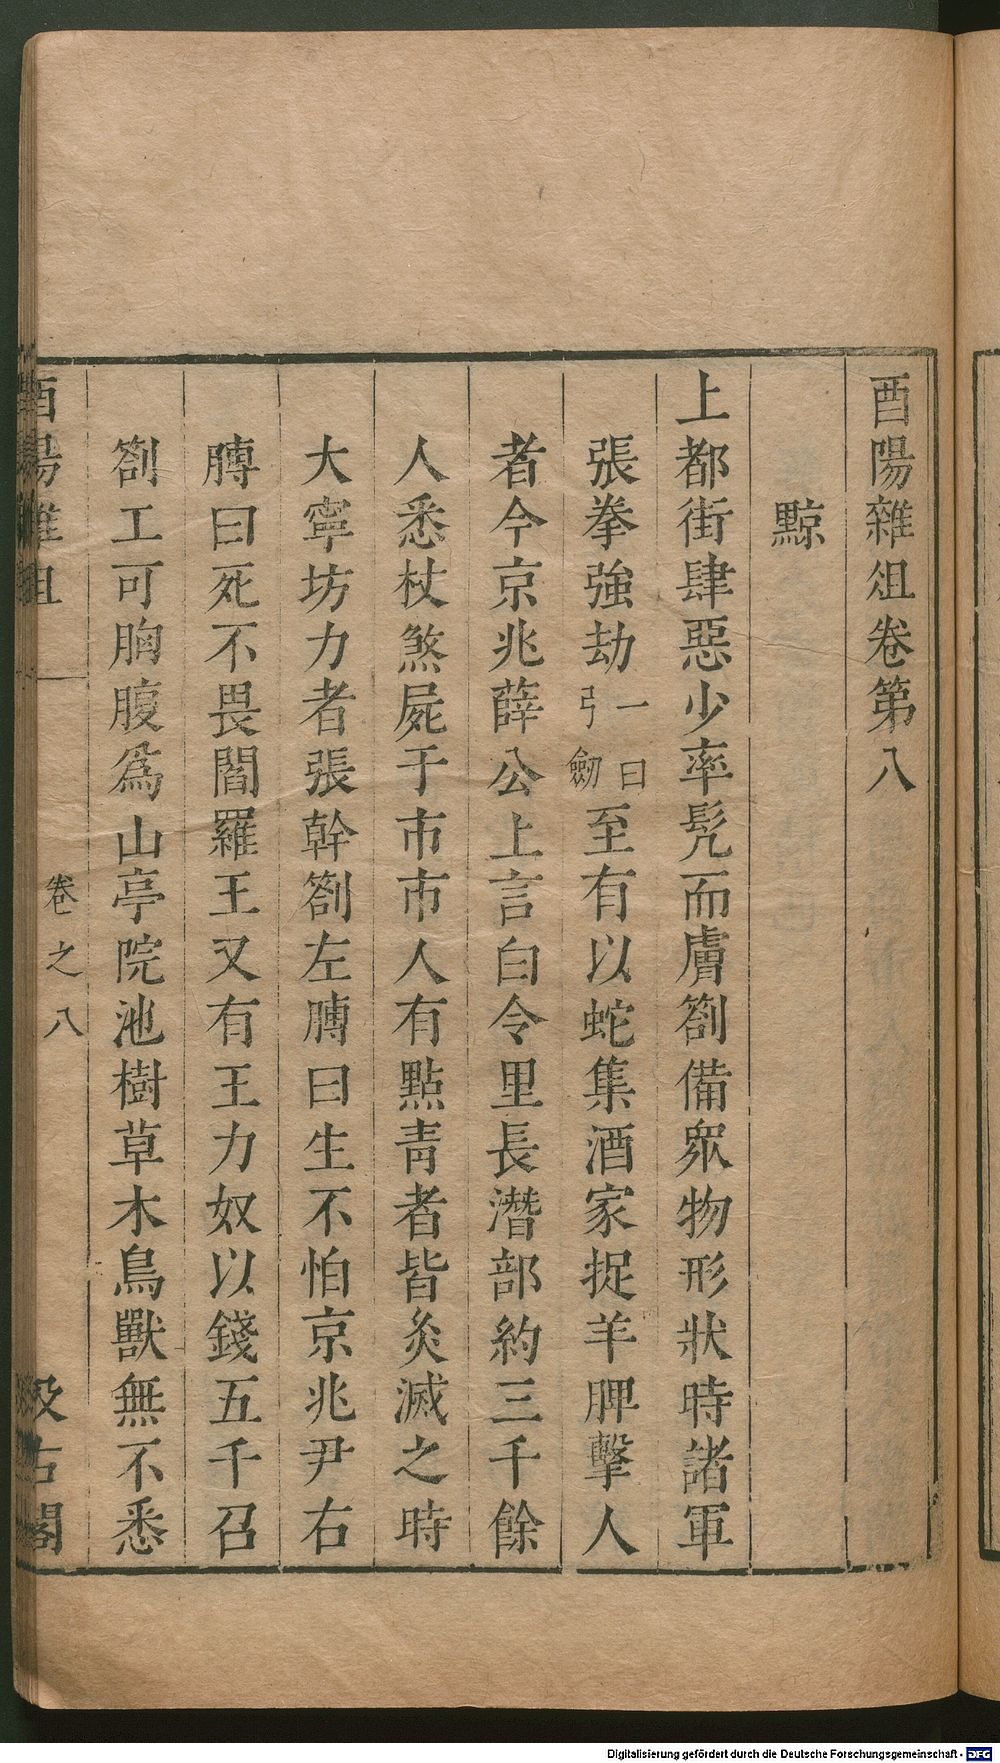 酉陽雜俎卷第八
黥
上都街肆惡少率髡而膚劄備衆物形狀時諸軍
張拳強劫一曰引劒至有以蛇集酒家捉羊脾擊人
者今京兆薛公上言白令里長潛部約三千餘
人悉杖煞屍于市市人有點青者皆炙滅之時
大寧坊力者張幹劄左膊曰生不怕京兆尹右
膊曰死不畏閻羅王又有王力奴以錢五千召
劄工可胸腹爲山亭院池樹草木鳥獸無不悉
酉陽雜俎 卷之八 汲古閣
Digitalisierung gefördert durch die Deutsche Forschungsgemeinschaft - DFG